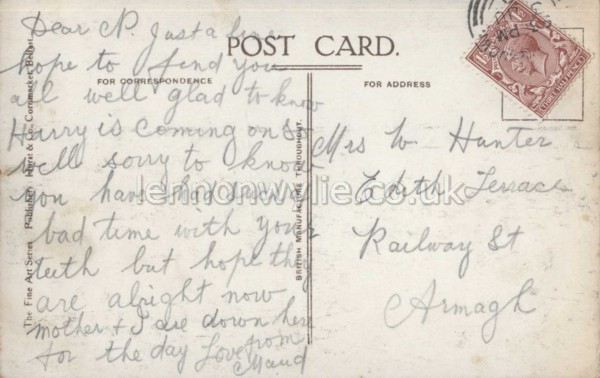 Dear N. Just a line
hope to find you
all well glad to know
Harry is coming on so
well sorry to know
you have had such
bad time with your
teeth but hope they
are alright now
mother & I are down here
for the day Love from
Maud
POST CARD.
FOR CORRESPONDENCE
FOR ADDRESS
Mrs W. Hunter
Edith Terrace
Railway St
Armagh
The Fine Art Series
BRITISH MANUFACTURE THROUGHOUT.
lennonwylie.co.uk